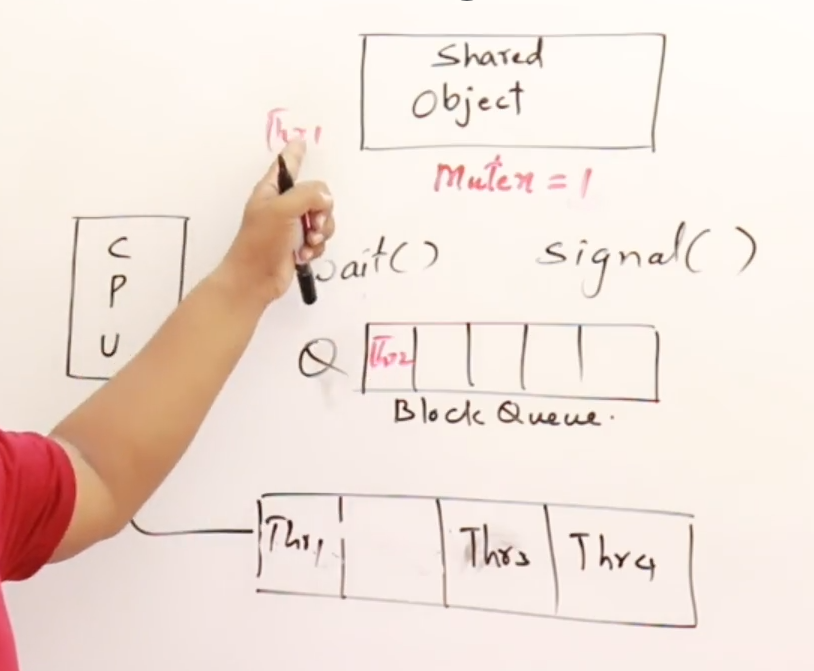 Shared
Object
Thr1
Mutex = 1
C
P
U
wait()
signal( )
Q
Thr2
Block Queue.
Thr1
Thr3
Thr4